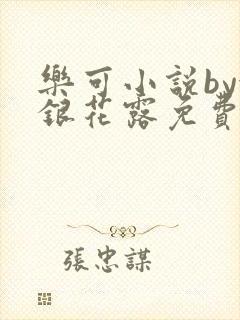 樂可小說by
銀花露免費
張忠謀